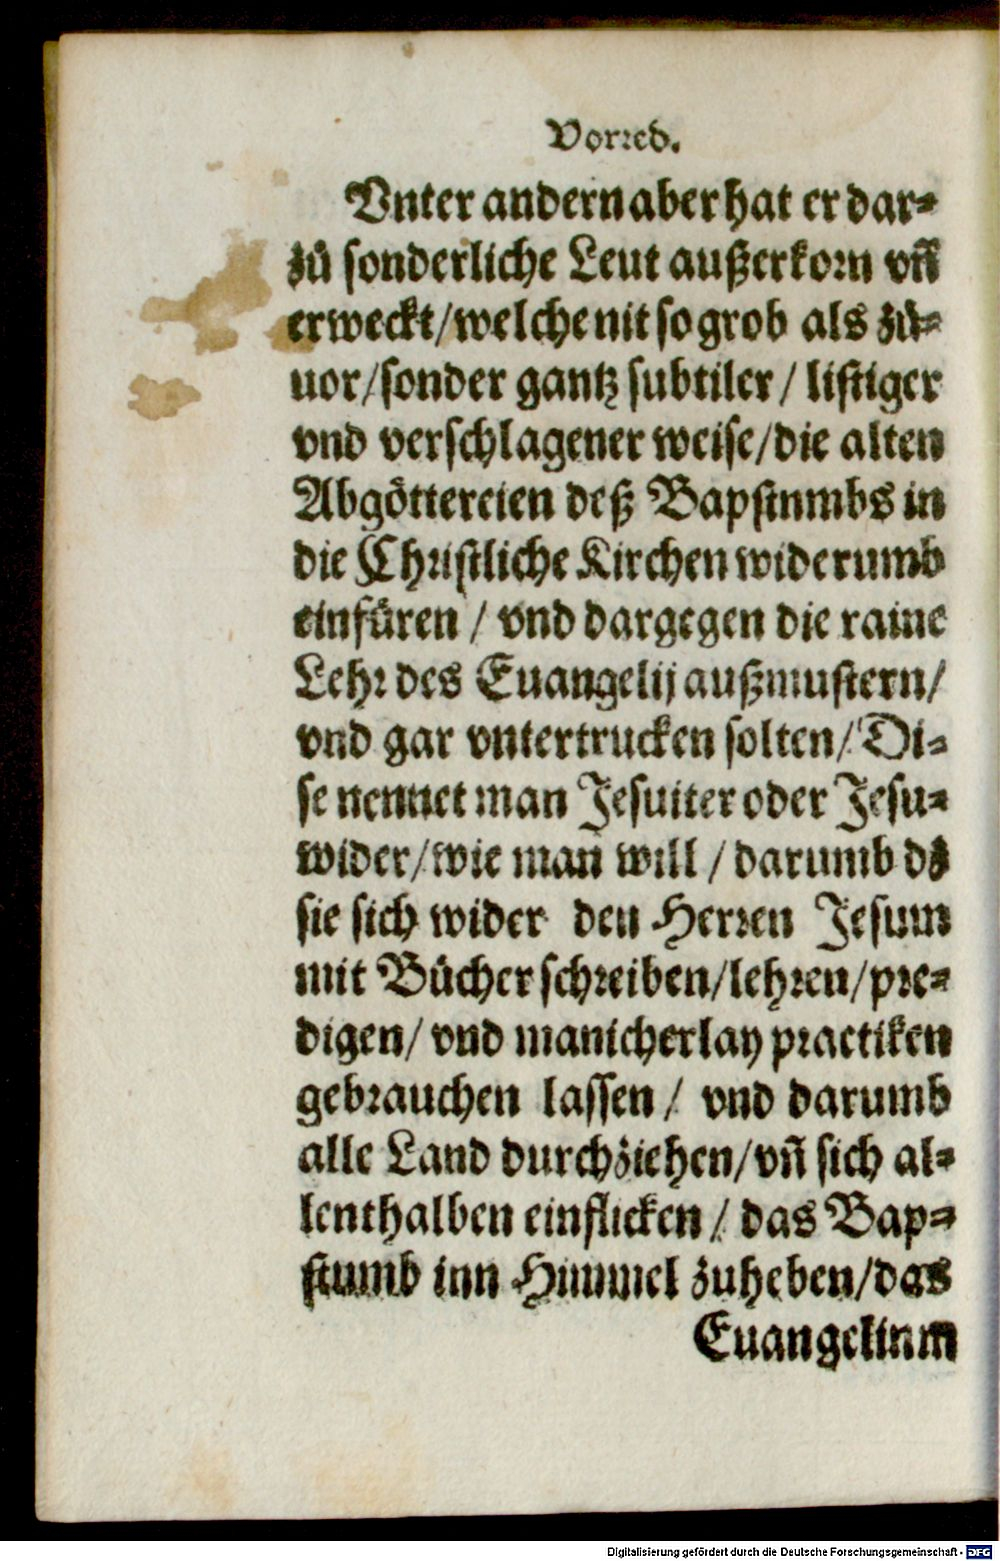 Vorred.
Vnter andern aber hat er dar⸗
zů sonderliche Leut außerkorn vñ
erweckt/welche nit so grob als zů⸗
uor/sonder gantz subtiler / listiger
vnd verschlagener weise/die alten
Abgöttereien deß Bapstumbs in
die Christliche Kirchen widerumb
einfüren / vnd dargegen die raine
Lehr des Euangelij außmustern/
vnd gar vntertrucken solten/ Di⸗
se nennet man Jesuiter oder Jesu⸗
wider/wie man will / darumb dz
sie sich wider den Herren Jesum
mit Bücher schreiben/lehren/pre⸗
digen/ vnd manicherlay practiken
gebrauchen lassen / vnd darumb
alle Land durchziehen/vñ sich al⸗
lenthalben einflicken / das Bap⸗
stumb inn Himmel zuheben/das
Euangelium
Digitalisierung gefördert durch die Deutsche Forschungsgemeinschaft - DFG